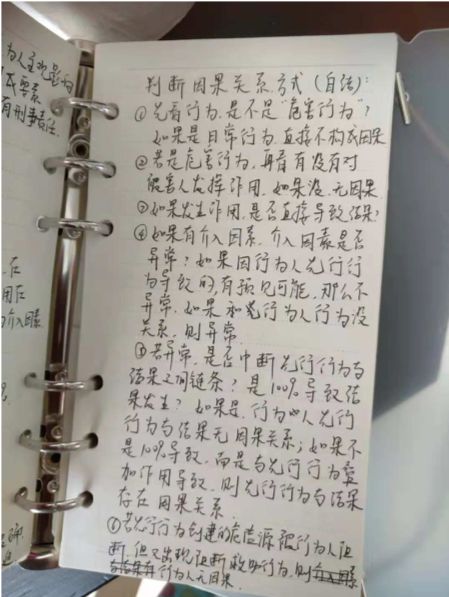 为人主观是否
成要素
有刑事责任
判断因果关系方式（自结）：
①先看行为，是不是“危害行为”？
如果是日常行为，直接不构成因果
②若是危害行为，再看有没有对
被害人发挥作用，如果没，无因果
③如果发生作用，是否直接导致结果？
④如果有介入因素，介入因素是否
异常？如果因行为人先行行
为导致的，有预见可能，那么不
异常，如果和先行为人行为没
关系，则异常
⑤若异常，是否中断先行行为与
结果之间链条？是100%导致结
果发生？如果是，行为人先行
行为与结果无因果关系；如果不
是100%导致，而是与先行行为叠
加作用导致，则先行行为与结果
存在因果关系
⑥若先行行为创建的危险源被行为人阻
断，但又出现阻断救助行为，则
行为人无因果
在
用在
为介入因素